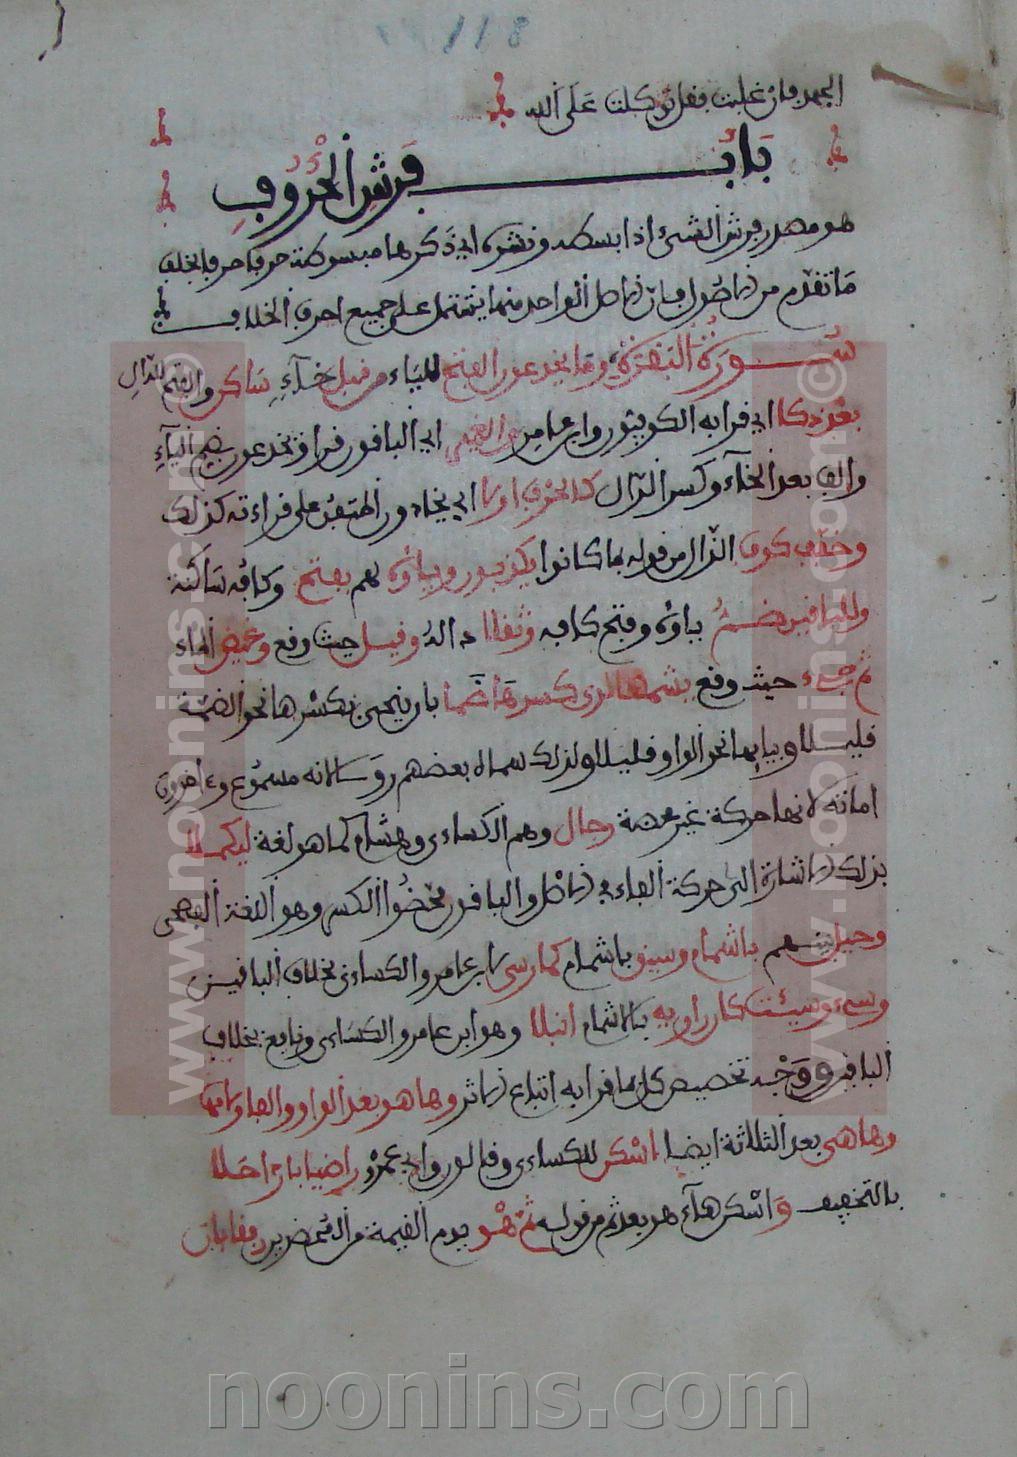 118
الجهد فان غلبت فقل توكلت على الله
باب فرش الحروف
هو مصدر فرش الشيء اذا بسطه ونشره اي ذكرها مبسوطة حرفا حرفا بخلاف
ما تقدم من الاصول فان الاصل الواحد منها يشتمل على جميع احرف الخلاف
سورة البقرة وما يخدعون الفتح للياء من قبل خاء ساكن والفتح للدال
بعد ذكا اي قرا به الكوفيون وابن عامر والغير اي الباقون قراو يخدعون بضم الياء
والف بعد الخاء وكسر الدال كالحرف اولا اي يخادعون المتفق على قراءته كذلك
وخفف كوف الذال من قوله بما كانوا يكذبون وياؤه لهم بفتح وكافه ساكنة
وللباقين ضم ياؤه وفتح كافه وثقلا ذاله وقيل حيث وقع وغيض الماء
ثم جيء حيث وقع يشمها لدى كسرها ضما بان ينحى بكسرها نحو الضمة
قليلا وبيايها نحو الواو قليلا ولذلك سماه بعضهم روما لانه مسموع وءاخرون
امالة لانها حركة غير محضة رجال وهم الكساءي وهشام كما هو لغة ليكملا
بذلك الاشارة الى حركة الفاء في الاصل والباقون محضوا الكسر وهو اللغة الفصحى
وحيل بينهم باشمام وسيق باشمام كما رسى لابن عامر والكساءي بخلاف الباقين
وسيء وسيئت كان راويه بالاشمام انبلا وهو ابن عامر والكساءي ونافع بخلاف
الباقين ووجه تخصيص كل ما قرا به اتباع الاثر وها هو بعد الواو والفا ولامها
وها هي بعد الثلاثة ايضا اسكن للكساءي وقالون وابي عمرو راضيا باردا حلا
بالتخفيف واسكن هاء هو بعد ثم من قوله ثم هو يوم القيمة من المحضرين رفقا بان
noonins.com
www.noonins.com©
www.noonins.com©